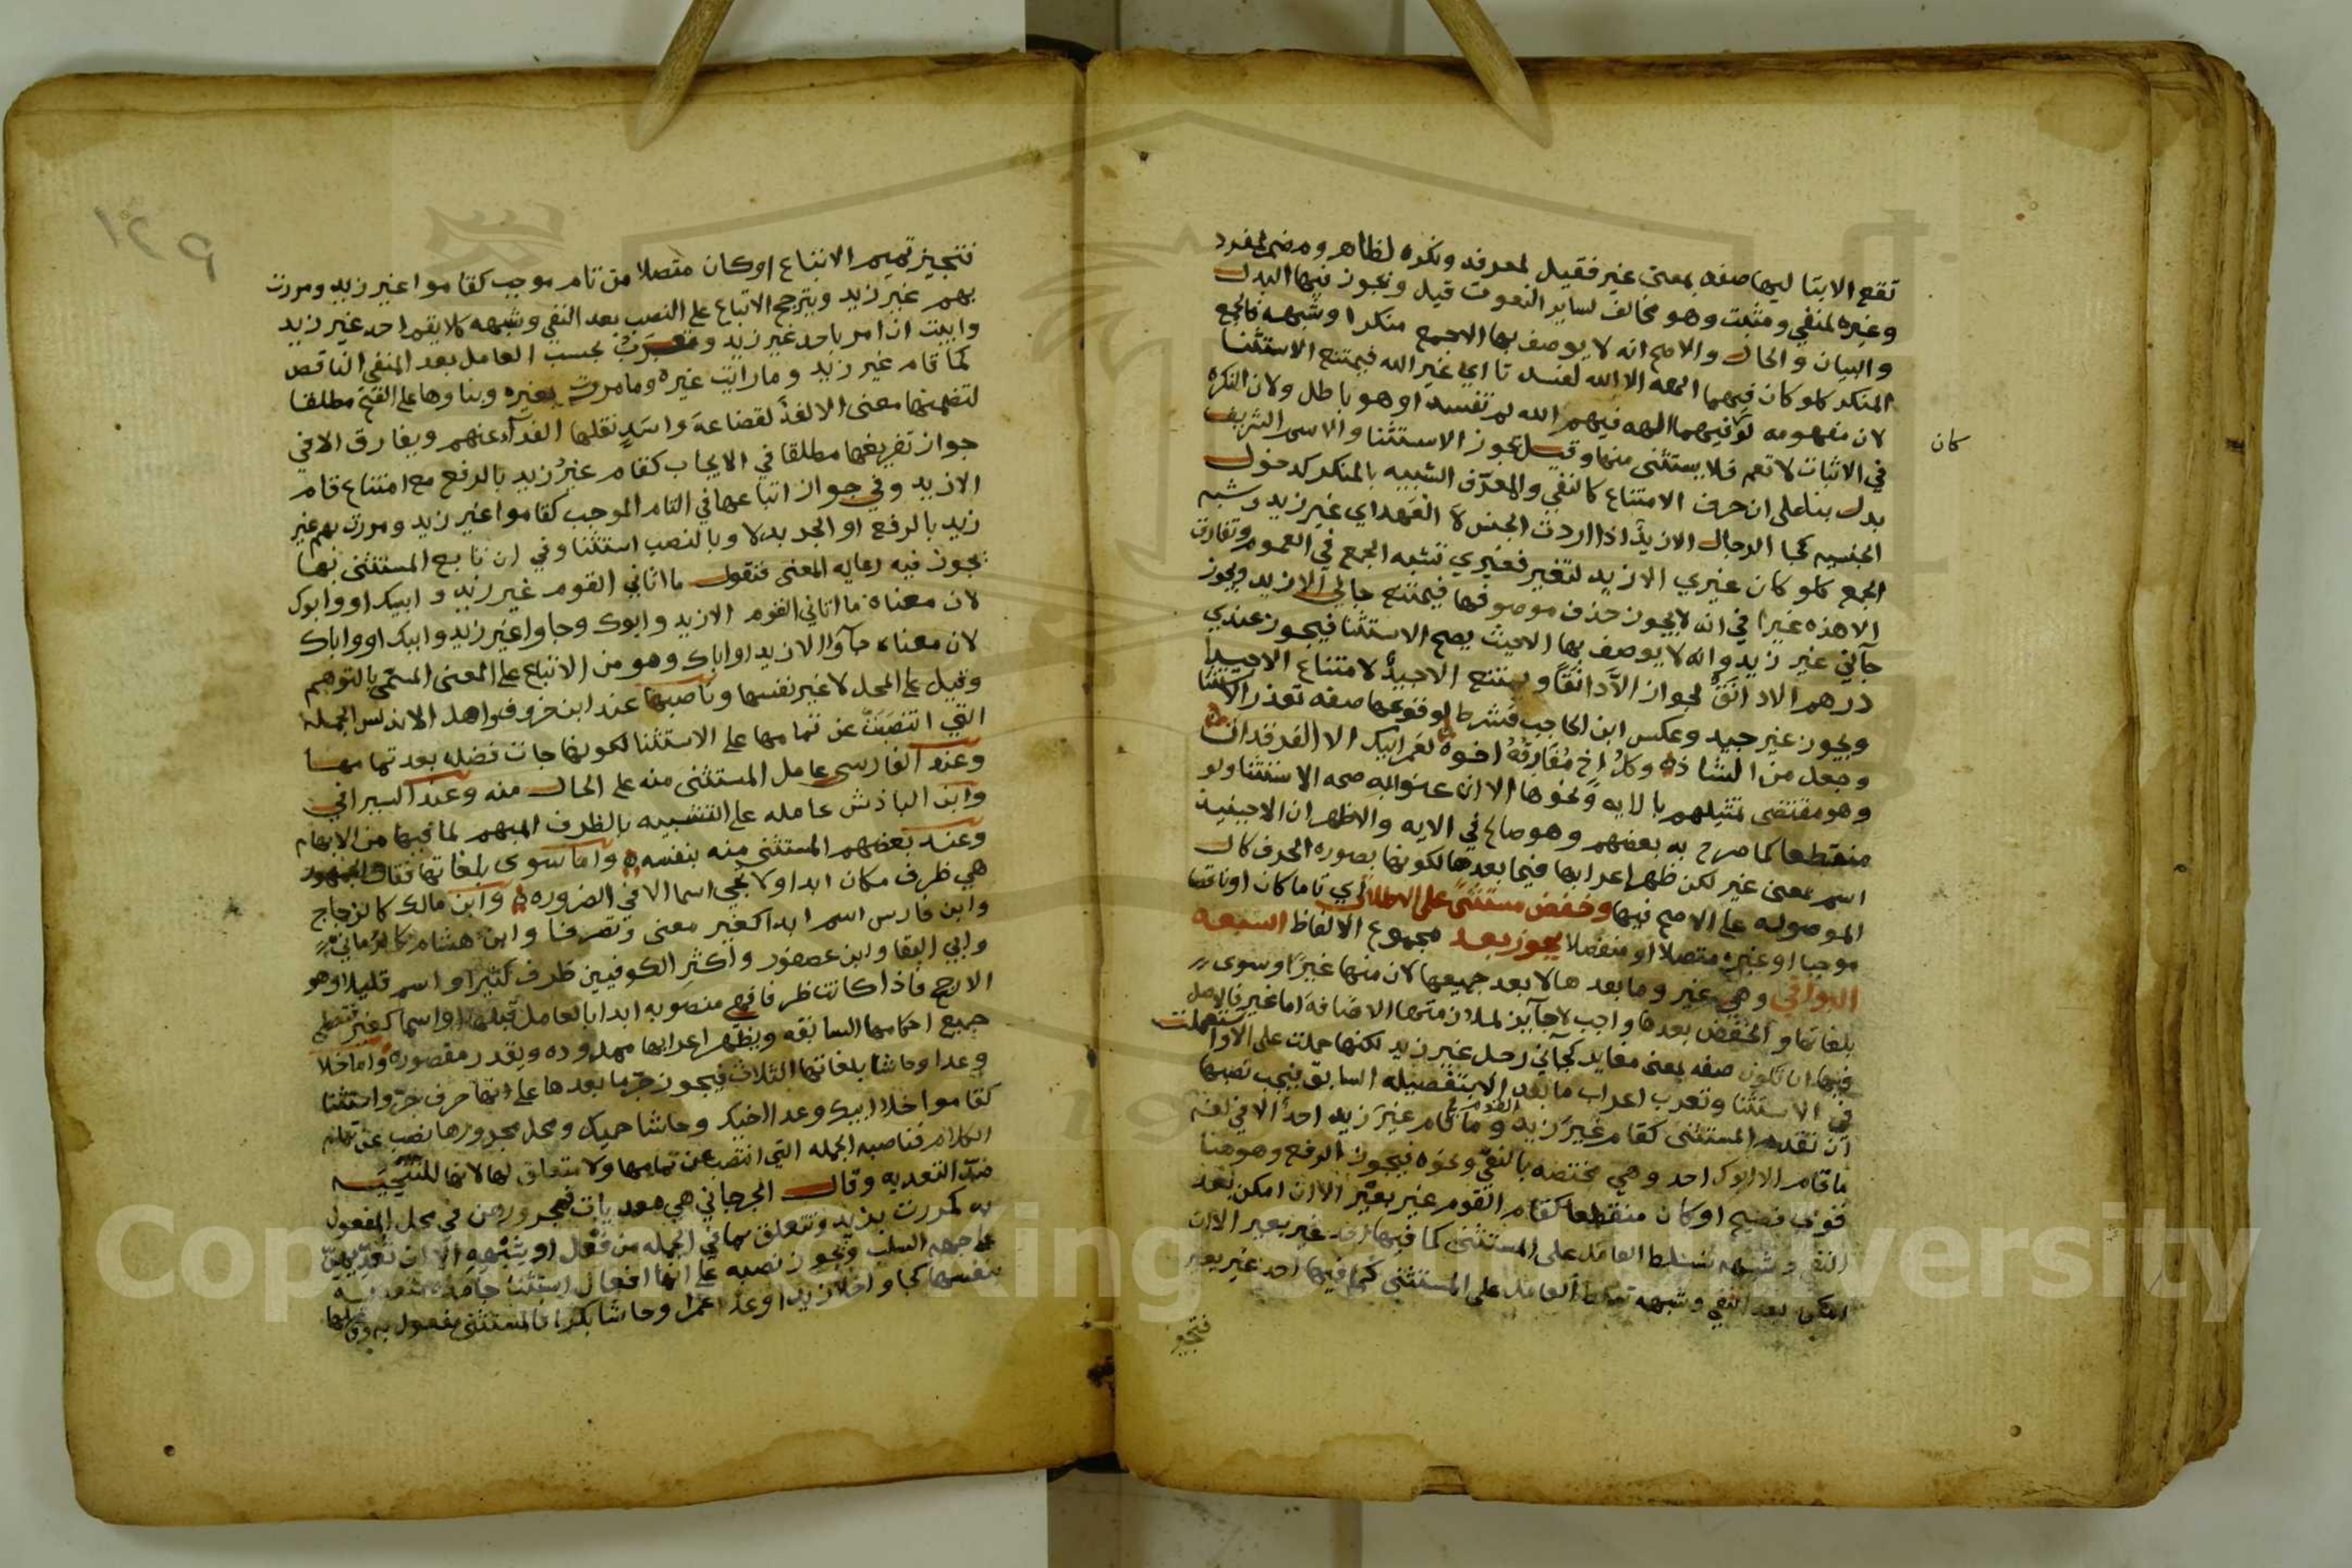 تقع الا بتاليها صفه بمعنى غير فقيل لمعرفه ونكره لظاهر ومضمر لمفرد
وغيره لمنفي ومثبت وهو مخالف لساير النعوت قيل ويجوز فيها البدل
والبيان والحال والاصح انه لا يوصف بها الا جمع منكر او شبهه فالجمع
المنكر كلو كان فيهما الهه الا الله لفسدتا اي غير الله فيمتنع الاستثنا
لان مفهومه لو فيهما الهه فيهم الله لم تفسد او هو باطل ولان النكره
كان
في الاثبات لا تعم فلا يستثنى منها وقيل يجوز الاستثنا والاسم الشريف
بدل بنا على ان حرف الامتناع كالنفي والمعرف الشبيه بالمنكر كمدخول
الجنسيه كجا الرجال الا زيد اذا اردت الجنس لا العهد اي غير زيد وشبه
الجمع كلو كان غيري الا زيد لتغير فغيري تشبه الجمع في العموم وتفارق
الا هذه غيرا في انه لا يجوز حذف موصوفها فيمتنع جاني الا زيد ويجوز
جآني غير زيد وانه لا يوصف بها الا حيث يصح الاستثنا فيجوز عندي
درهم الا دانق لجواز الا دانقا ويمتنع الا جيد لامتناع الا جيدا
ويجوز غير جيد وعكس ابن الحاجب فشرط لوقوعها صفه تعذر الاستثنا
وجعل من الشاذ وكل اخ مفارقه اخوه لعمر ابيك الا الفرقدان
وهو مقتضى تمثيلهم بالايه ونحوها الا ان عنوا به صحه الاستثنا ولو
منقطعا كما صرح به بعضهم وهو صالح في الايه والاظهر ان الا حينيذ
اسم بمعنى غير لكن ظهر اعرابها فيما بعدها لكونها بصوره الحرف كال
الموصوله على الاصح فيها وخفض مستثنى على الاطلاق اي تاما كان او ناقصا
موجبا او غيره متصلا او منفصلا يجوز بعد مجموع الالفاظ السبعه
البواقي وهي غير وما بعدها لا بعد جميعها لان منها غيرا وسوى
بلغاتها والخفض بعدها واجب لا جآيز لملازمتها الاضافه اما غير فالاصل
فيها ان تكون صفه بمعنى مغاير كجآني رجل غير زيد لكنها حملت على الا واستعملت
في الاستثنا وتعرب اعراب ما بعد الا بتفصيله السابق فيجب نصبها
ان تقدم المستثنى كقام غير زيد القوم وما قام غير زيد احد الا في لغه
ما قام الا ابوك احد وهي مختصه بالنفي ونحوه فيجوز الرفع وهو هنا
قوي فصيح او كان منقطعا كقام القوم غير بعير الا ان امكن بعد
النفي وشبهه تسلط العامل على المستثنى كما فيها احد غير بعير الا ان
امكن بعد النفي وشبهه تسلط العامل على المستثنى كما فيها احد غير بعير
فتجيز
١٢٩
فتجيز تميم الاتباع او كان متصلا من تام موجب كقاموا غير زيد ومررت
بهم غير زيد ويترجح الاتباع على النصب بعد النفي وشبهه كلا يقم احد غير زيد
وابيت ان امر باحد غير زيد وتعرب بحسب العامل بعد المنفي الناقص
كما قام غير زيد وما رايت غيره وما مررت بغيره وبناوها على الفتح مطلقا
لتضمنها معنى الا لغه لقضاعه واسد نقلها الفرآ عنهم ويفارق الا في
جواز تفريغها مطلقا في الايجاب كقام غير زيد بالرفع مع امتناع قام
الا زيد وفي جواز اتباعها في التام الموجب كقاموا غير زيد ومررت بهم غير
زيد بالرفع او الجر بدلا وبالنصب استثنا وفي ان تابع المستثنى بها
يجوز فيه رعايه المعنى فتقول ما اتاني القوم غير زيد وابيك او وابوك
لان معناه ما اتاني القوم الا زيد وابوك وجاوا غير زيد وابيك او واباك
لان معناه جآوا الا زيدا واباك وهو من الاتباع على المعنى المسمى بالتوهم
وقيل على المحل لا غير نفسها وناصبها عند ابن خروف واهل الاندلس الجمله
التي انتصبت عن تمامها على الاستثنا لكونها جات فضله بعد تمامها
وعند الفارسي عامل المستثنى منه على الحال منه وعند السيرافي
وابن الباذش عامله على التشبيه بالظرف المبهم لما فيها من الابهام
وعند بعضهم المستثنى منه بنفسه واما سوى بلغاتها فقال الجمهور
هي ظرف مكان ابدا ولا يجي اسما الا في الضروره وابن مالك كالزجاج
وابن فارس اسم ابدا كغير معنى وتصرفا وابن هشام كالرماني
وابي البقا وابن عصفور واكثر الكوفيين ظرف كثيرا واسم قليلا وهو
الارجح فاذا كانت ظرفا فهي منصوبه ابدا بالعامل قبلها او اسما كغير فتعطى
جميع احكامها السابقه ويظهر اعرابها ممدوده ويقدر مقصوره واما خلا
وعدا وحاشا بلغاتها الثلاث فيجوز جر ما بعدها على انها حرف جر واستثنا
كقاموا خلا ابيك وعدا اخيك وحاشا حميك ومحل مجرورها نصب عن تمام
الكلام فناصبه الجمله التي انتصب عن تمامها ولا متعلق لها لانها للتنحيه
ضد التعديه وقال الجرجاني هي معديات فمجرورهن في محل المفعول
به كمررت بزيد وتتعلق بما في الجمله من فعل او شبهه الا ان تعديهن
على جهه السلب ويجوز نصبه على انها افعال استثنا جامده متعديه
بنفسها كجاوا خلا زيدا وعدا عمرا وحاشا بكرا فالمستثنى مفعول به وفاعلها
Copyright © King Saud University